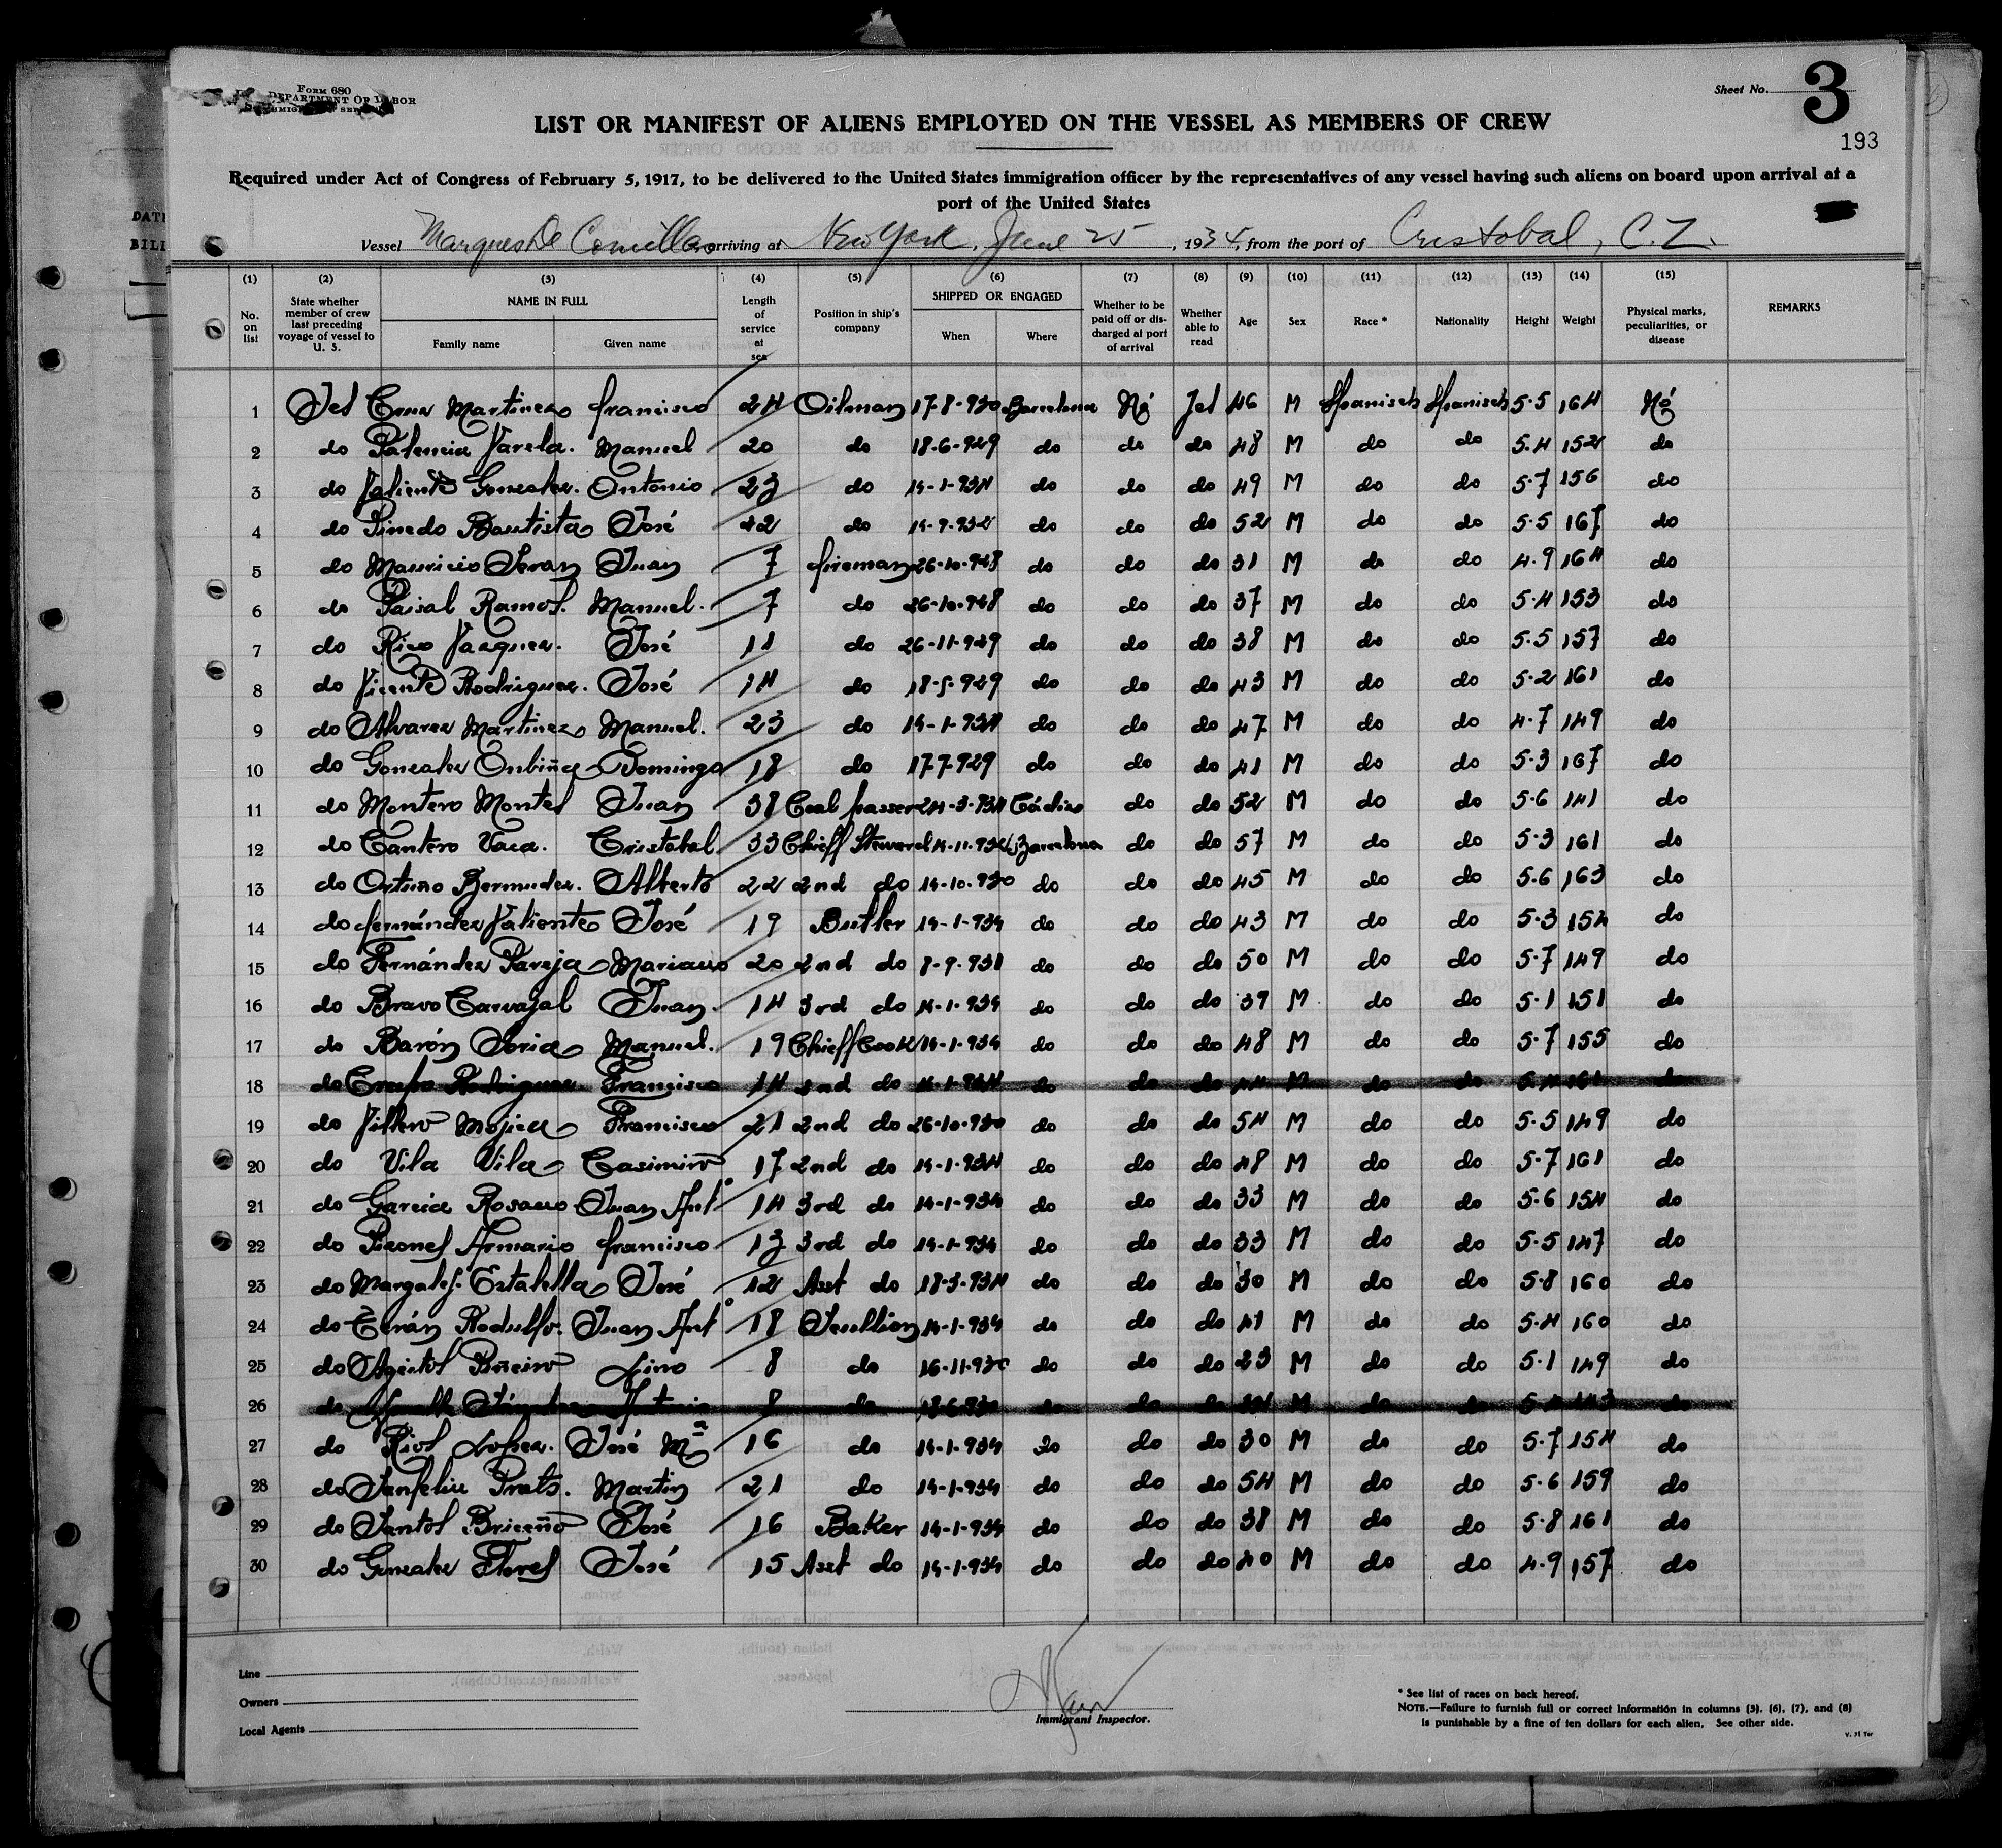 Form 680
DEPARTMENT OF LABOR
Sheet No. 3
193
LIST OR MANIFEST OF ALIENS EMPLOYED ON THE VESSEL AS MEMBERS OF CREW
Required under Act of Congress of February 5, 1917, to be delivered to the United States immigration officer by the representatives of any vessel having such aliens on board upon arrival at a
port of the United States
Vessel Marques De Comillas arriving at New York, June 25, 1934, from the port of Cristobal, C.Z.
(1) (2) (3) (4) (5) (6) (7) (8) (9) (10) (11) (12) (13) (14) (15)
No. on list State whether member of crew last preceding voyage of vessel to U. S. NAME IN FULL Family name Given name Length of service at sea Position in ship's company SHIPPED OR ENGAGED When Where Whether to be paid off or discharged at port of arrival Whether able to read Age Sex Race * Nationality Height Weight Physical marks, peculiarities, or disease REMARKS
1 Jes Martinez francisco 24 Oilman 17-8-930 Barcelona No Jes 46 M Spanisch Spanisch 5.5 164 No
2 do Palencia Varela. Manuel 20 do 18-6-929 do do do 48 M do do 5.4 152 do
3 do Valiente Gonzalez. Antonio 23 do 14-1-934 do do do 49 M do do 5.7 156 do
4 do Pinedo Bautista José 42 do do do do 52 M do do 5.5 167 do
5 do Mauricio Juan 7 fireman 26-10-928 do do do 31 M do do 4.9 164 do
6 do Ramos. Manuel. 7 do 26-10-928 do do do 37 M do do 5.4 153 do
7 do Rico Vazquez. José 11 do 26-11-929 do do do 38 M do do 5.5 157 do
8 do Vicente Rodriguez. José 14 do 18-5-929 do do do 43 M do do 5.2 161 do
9 do Alvarez Martinez Manuel. 23 do 14-1-934 do do do 47 M do do 4.7 149 do
10 do Gonzalez Domingo 18 do 17-7-929 do do do 41 M do do 5.3 167 do
11 do Montero Montes Juan 38 Coal passer 24-3-934 Cádiz do do 52 M do do 5.6 141 do
12 do Cantero Vaca. Cristobal. 33 Chieff Steward Barcelona do do 57 M do do 5.3 161 do
13 do Ortuño Bermudez. Alberto 22 2nd do 14-10-930 do do do 45 M do do 5.6 163 do
14 do fernández Valiente José 19 Butler 14-1-934 do do do 43 M do do 5.3 154 do
15 do Fernández Pareja Mariano 20 2nd do 8-9-931 do do do 50 M do do 5.7 149 do
16 do Bravo Carvajal Juan. 14 3rd do 14-1-934 do do do 39 M do do 5.1 151 do
17 do Barón Soria Manuel. 19 Chieff Cook 14-1-934 do do do 48 M do do 5.7 155 do
18 do Crespo Rodriguez Francisco 14 2nd do 14-1-934 do do do 44 M do do do
19 do Mojica Francisco 21 2nd do 26-10-930 do do do 54 M do do 5.5 149 do
20 do Vila Vila Casimiro 17 2nd do 14-1-934 do do do 48 M do do 5.7 161 do
21 do Garcia Rosano Juan Antº 14 3rd do 14-1-934 do do do 33 M do do 5.6 154 do
22 do Armario francisco 13 3rd do 14-1-934 do do do 33 M do do 5.5 147 do
23 do Margalef. Estatella José 12 Asst do 18-3-934 do do do 30 M do do 5.8 160 do
24 do Terán Rodulfo. Juan Antº 18 Scullion 14-1-934 do do do 41 M do do 5.4 160 do
25 do Ageitos Piñeiro Lino 8 do 16-11-930 do do do 23 M do do 5.1 149 do
26 do Antonio 8 do do do do M do do do
27 do Rios Lopez. José Mª 16 do 14-1-934 do do do 30 M do do 5.7 154 do
28 do Sanfeliu Prats. Martin 21 do 14-1-934 do do do 54 M do do 5.6 159 do
29 do Santos Briceño José 16 Baker 14-1-934 do do do 38 M do do 5.8 161 do
30 do Gonzalez Flores José 15 Asst do 14-1-934 do do do 40 M do do 4.9 157 do
Line
Owners
Local Agents
Immigrant Inspector.
* See list of races on back hereof.
NOTE.—Failure to furnish full or correct information in columns (3), (6), (7), and (8)
is punishable by a fine of ten dollars for each alien. See other side.